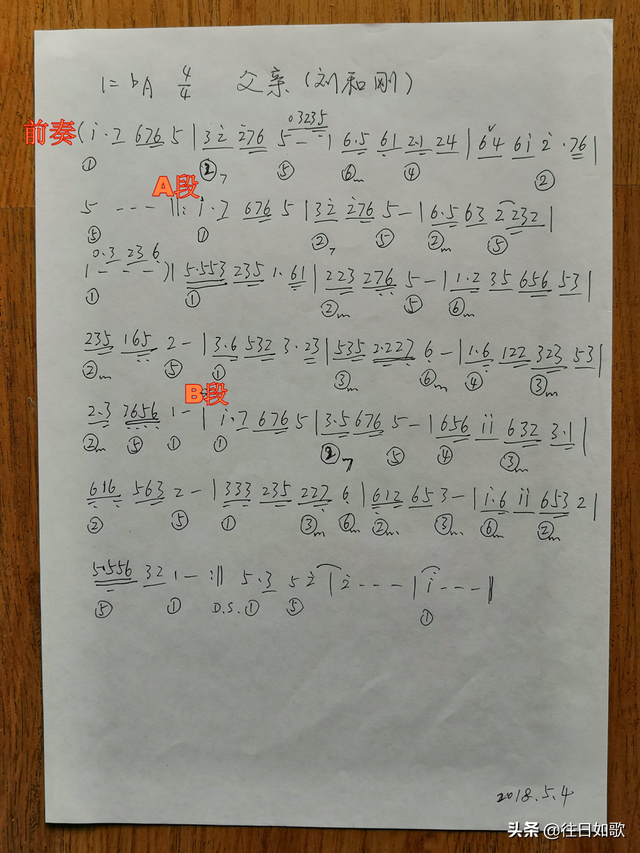 1=bA 4/4 父亲(刘和刚)
0 3235
前奏 (i·7 676 5 | 32 276 5 - | 6·5 61 2·1 24 | 64 6i 2·76 |
① ②7 ⑤ ⑥m ④ ②
A段
5 - - - ‖: i·7 676 5 | 32 276 5 - | 6·5 63 2 232 |
⑤ ① ②7 ⑤ ②m ⑤
0·3 236
1 - - - )| 5·553 235 1·61 | 223 276 5 - | 1·2 35 656 53 |
① ① ②m ⑤ ⑥m
235 165 2 - | 3·6 532 3·23 | 535 2·227 6 - | 1·6 122 323 53 |
②m ⑤ ① ③m ⑥m ④ ③m
B段
2·3 7656 1 - | i·7 676 5 | 3·5 676 5 - | 656 ii 632 3·1 |
②m ⑤ ① ① ②7 ⑤ ④ ③m
616 563 2 - | 333 235 227 6 | 612 653 - | i·6 ii 653 2 |
② ⑤ ① ③m ⑥m ②m ③m ⑥m ②m
5·556 32 1 - :‖ 5·3 5 2 | 2 - - - | i - - - ‖
⑤ ① D.S. ① ⑤ ①
2018.5.4
头条 @往日如歌